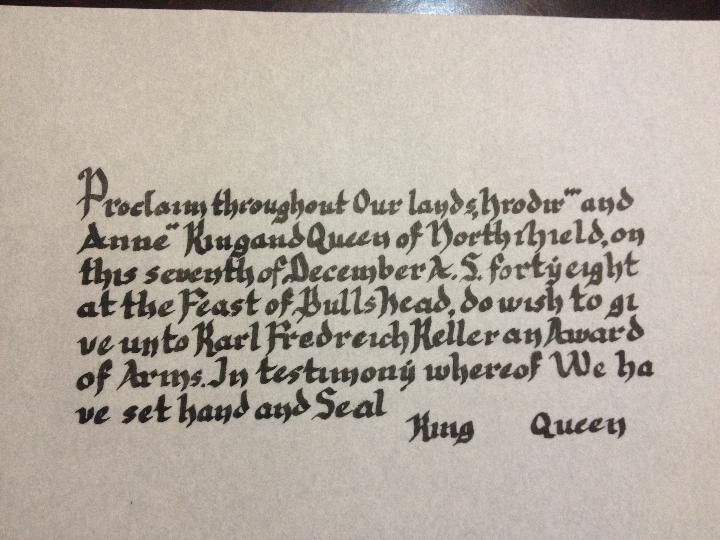 Proclaim throughout Our lands, Hrodir''' and
Anne'' King and Queen of Northshield, on
this seventh of December A. S. forty eight
at the Feast of Bulls head, do wish to gi
ve unto Karl Fredreich Keller an Award
of Arms. In testimony whereof We ha
ve set hand and Seal
King Queen